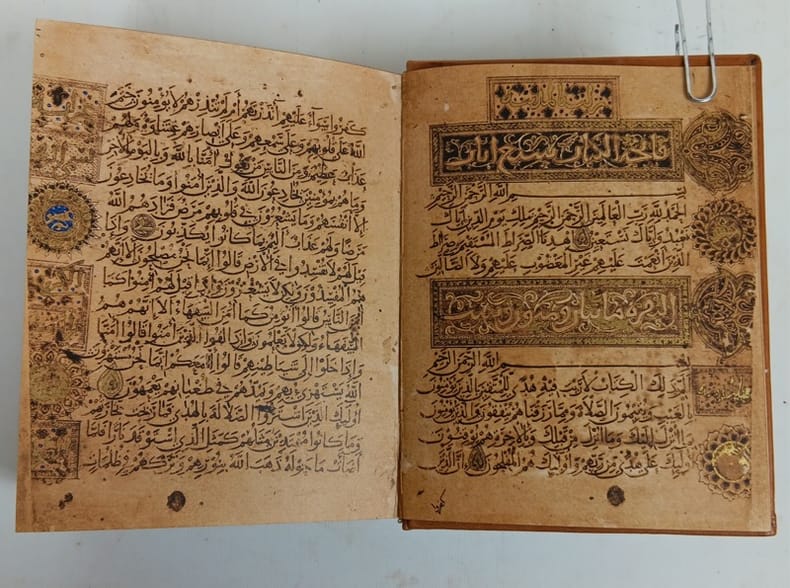 فاتحة الكتاب سبع ايات
بسم الله الرحمن الرحيم
الحمد لله رب العالمين الرحمن الرحيم ملك يوم الدين اياك
نعبد واياك نستعين اهدنا الصراط المستقيم صراط
الذين انعمت عليهم غير المغضوب عليهم ولا الضالين
البقرة مائتان وثمانون وست
بسم الله الرحمن الرحيم
الم ذلك الكتاب لا ريب فيه هدى للمتقين الذين يؤمنون
بالغيب ويقيمون الصلاة ومما رزقناهم ينفقون والذين يؤمنون
بما انزل اليك وما انزل من قبلك وبالاخرة هم يوقنون
اولئك على هدى من ربهم واولئك هم المفلحون ان الذين
كفروا
كفروا سواء عليهم أنذرتهم أم لم تنذرهم لا يؤمنون ختم
الله على قلوبهم وعلى سمعهم وعلى ابصارهم غشاوة ولهم
عذاب عظيم ومن الناس من يقول امنا بالله وباليوم الاخر
وما هم بمؤمنين يخادعون الله والذين امنوا وما يخادعون
الا انفسهم وما يشعرون في قلوبهم مرض فزادهم الله
مرضا ولهم عذاب اليم بما كانوا يكذبون واذا
قيل لهم لا تفسدوا في الارض قالوا انما نحن مصلحون الا انهم
هم المفسدون ولكن لا يشعرون واذا قيل لهم امنوا كما
امن الناس قالوا انؤمن كما امن السفهاء الا انهم هم
السفهاء ولكن لا يعلمون واذا لقوا الذين امنوا قالوا امنا
واذا خلوا الى شياطينهم قالوا انا معكم انما نحن مستهزؤن
الله يستهزئ بهم ويمدهم في طغيانهم يعمهون
اولئك الذين اشتروا الضلالة بالهدى فما ربحت تجارتهم
وما كانوا مهتدين مثلهم كمثل الذي استوقد نارا فلما
أضاءت ما حوله ذهب الله بنورهم وتركهم في ظلمات